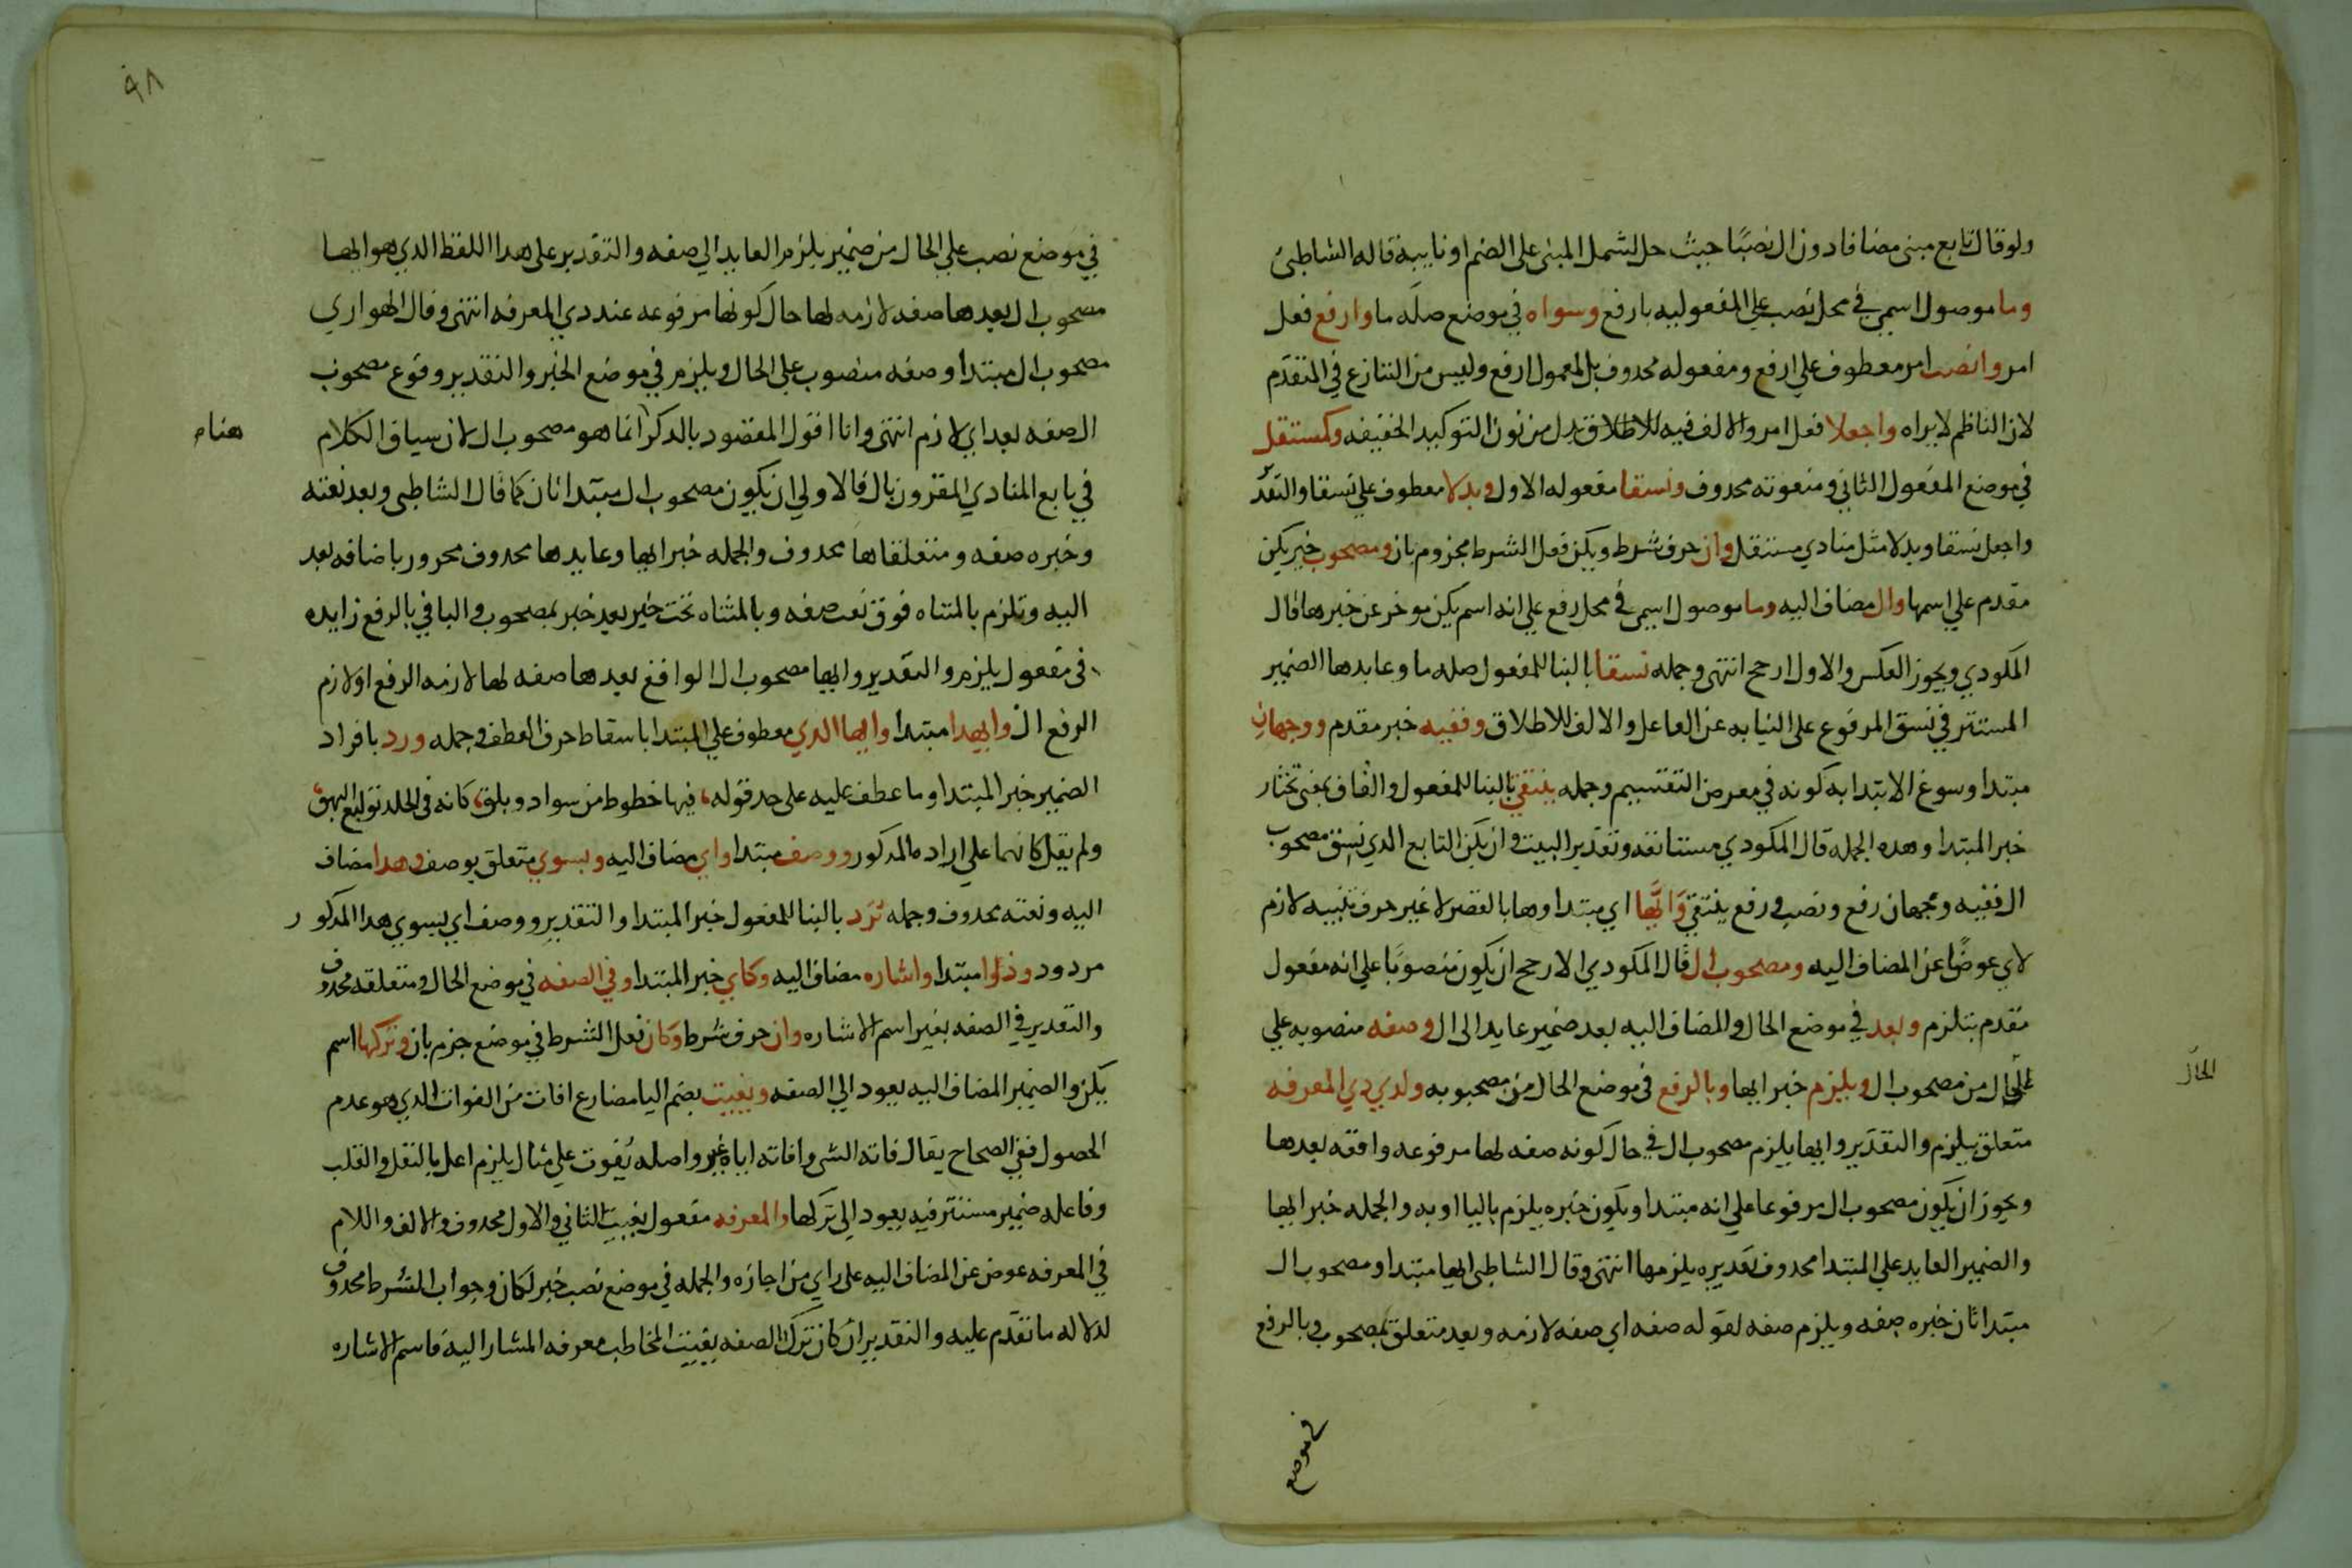 ولو قال تابع مبنى مضافا دون ال نصبًا حيث حل لشمل المبنى على الضم او نايبه قاله الشاطبى
وما موصول اسمي في محل نصب على المفعوليه بارفع وسواه في موضع صله ما وارفع فعل
امر وانصب امر معطوف على ارفع ومفعوله محدوف بل المعمول ارفع وليس من التنازع في المتقدم
لان الناظم لا يراه واجعلا فعل امر والالف فيه للاطلاق بدل من نون التوكيد الخفيفه وكمستقل
في موضع المفعول الثاني ومنعوته محدوف ونسقا مفعوله الاول وبدلا معطوف على نسقا والتقد
واجعل نسقا وبدلا مثل منادي مستقل وان حرف شرط ويكن فعل الشرط مجزوم بان ومصحوب خبر يكن
مقدم على اسمها وال مضاف اليه وما موصول اسمى في محل رفع على انه اسم يكن موخر عن خبرها قال
المكودي ويجوز العكس والاول ارجح انتهى وجمله نسقا بالبنا للمفعول صله ما وعايدها الضمير
المستتر في نسق المرفوع على النيابه عن الفاعل والالف للاطلاق وففيه خبر مقدم ووجهان
مبتدا وسوغ الابتدا به كونه في معرض التقسيم وجمله ينتقى بالبنا للمفعول والقاف بمعنى تختار
خبر المبتدا وهده الجمله قال المكودي مستانفه وتقدير البيت وان يكن التابع الدي نسق مصحوب
ال ففيه وجهان رفع ونصب ورفع ينتقى وَايُّها اي مبتدا وها بالقصر لا غير حرف تنبيه لازم
لاي عوضًا عن المضاف اليه ومصحوب ال قال المكودي الارجح ان يكون منصوبًا على انه مفعول
مقدم بتلزم وبعد في موضع الحال والمضاف اليه بعد ضمير عايد الى ال وصفه منصوبه على
الحال من مصحوب ال ويلزم خبر ايها وبالرفع في موضع الحال من مصحوبه ولدي دي المعرفه
الحال
متعلق بيلزم والتقدير وايها يلزم مصحوب ال في حال كونه صفه لها مرفوعه واقعه بعدها
ويجوز ان يكون مصحوب ال مرفوعا على انه مبتدا ويكون خبره يلزم باليا او به والجمله خبر ايها
والضمير العايد على المبتدا محدوف تقديره يلزمها انتهى وقال الشاطبى ايها مبتدا ومصحوب ال
مبتدا ثان خبره صفه ويلزم صفه لقوله صفه اي صفه لازمه وبعد متعلق بمصحوب وبالرفع
في موضع
٩٨
في موضع نصب على الحال من ضمير يلزم العايد الي صفه والتقدير على هدا اللفظ الدي هو ايها
مصحوب ال بعدها صفه لازمه لها حال كونها مرفوعه عند دي المعرفه انتهى وقال الهواري
مصحوب ال مبتدا وصفه منصوب على الحال ويلزم في موضع الخبر والتقدير وقوع مصحوب
ال صفه بعد اي لازم انتهى وانا اقول المقصود بالدكر انما هو مصحوب ال لان سياق الكلام
هنا
في تابع المنادي المقرون بال فالاولي ان يكون مصحوب ال مبتدا ثان كما قال الشاطبى وبعد نعته
وخبره صفه ومتعلقاها محدوف والجمله خبر ايها وعايدها محدوف مجرور باضافه بعد
اليه وتلزم بالمتناه فوق نعت صفه وبالمثناه تحت خبر بعد خبر لمصحوب والبا في بالرفع زايده
في مفعول يلزم والتقدير وايها مصحوب ال الواقع بعدها صفه لها لازمه الرفع او لازم
الرفع ال وايهدا مبتدا وايها الدي معطوف على المبتدا باسقاط حرف العطف وجمله ورد بافراد
الضمير خبر المبتدا وما عطف عليه على حد قوله، فيها خطوط من سواد وبلق، كانه في الجلد توليع البهق،
ولم يقل كانهما على اراده المدكور ووصف مبتدا واي مضاف اليه وبسوي متعلق بوصف وهدا مضاف
اليه ونعته محدوف وجمله تُرَد بالبنا للمفعول خبر المبتدا والتقدير ووصف اي بسوي هدا المدكور
مردود وذوا مبتدا واشاره مضاف اليه وكاي خبر المبتدا وفي الصفه في موضع الحال ومتعلقه محدوف
والتقدير في الصفه بغير اسم الاشاره وان حرف شرط وكان فعل الشرط في موضع جزم بان وتركها اسم
يكن والضمير المضاف اليه يعود الي الصفه ويفيت بضم اليا مضارع افات من الفوات الدي هو عدم
الحصول ففي الصحاح يقال فاته الشى وافاته اياه غيره واصله يُفوت على مثال يلزم اعل بالنقل والقلب
وفاعله ضمير مستتر فيه يعود الى تركها والمعرفه مفعول يفيت الثاني والاول محدوف والالف واللام
في المعرفه عوض عن المضاف اليه على راي من اجازه والجمله في موضع نصب خبر لكان وجواب الشرط محدوف
لدلاله ما تقدم عليه والتقدير ان كان ترك الصفه يفيت المخاطب معرفه المشار اليه فاسم الاشاره